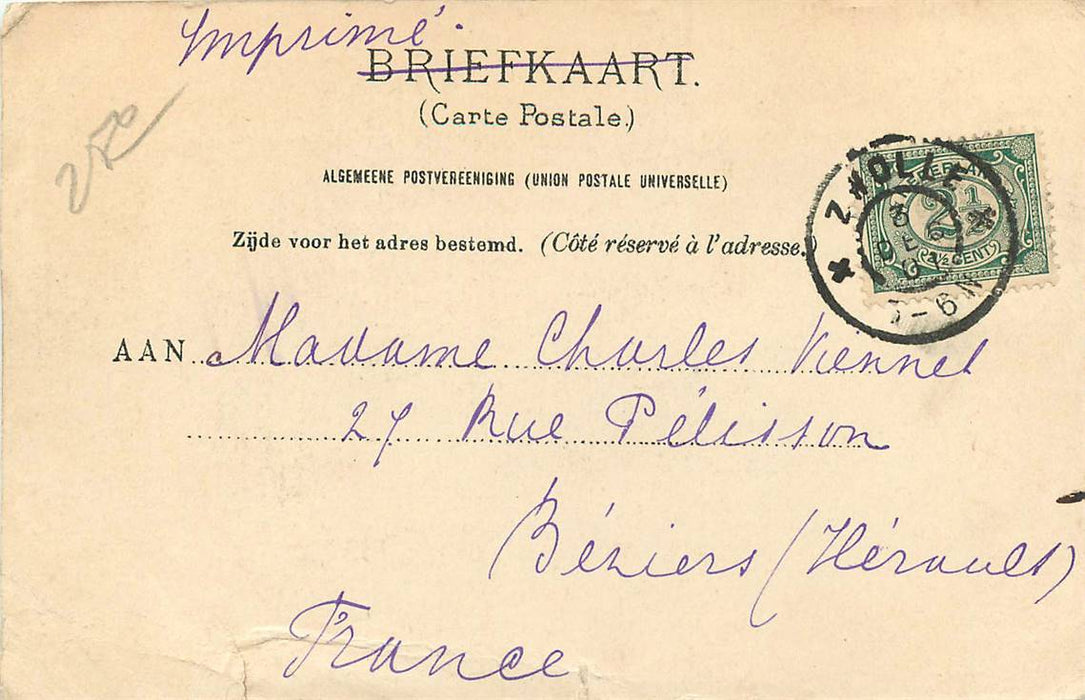 Imprimé.
BRIEFKAART.
(Carte Postale.)
ALGEMEENE POSTVEREENIGING (UNION POSTALE UNIVERSELLE)
Zijde voor het adres bestemd. (Côté réservé à l'adresse.)
ZWOLLE
NEDERLAND
2½
2½ CENT
3 DEC
5-6 N
AAN Madame Charles Viennet
27 Rue Pélisson
Béziers (Hérault)
France